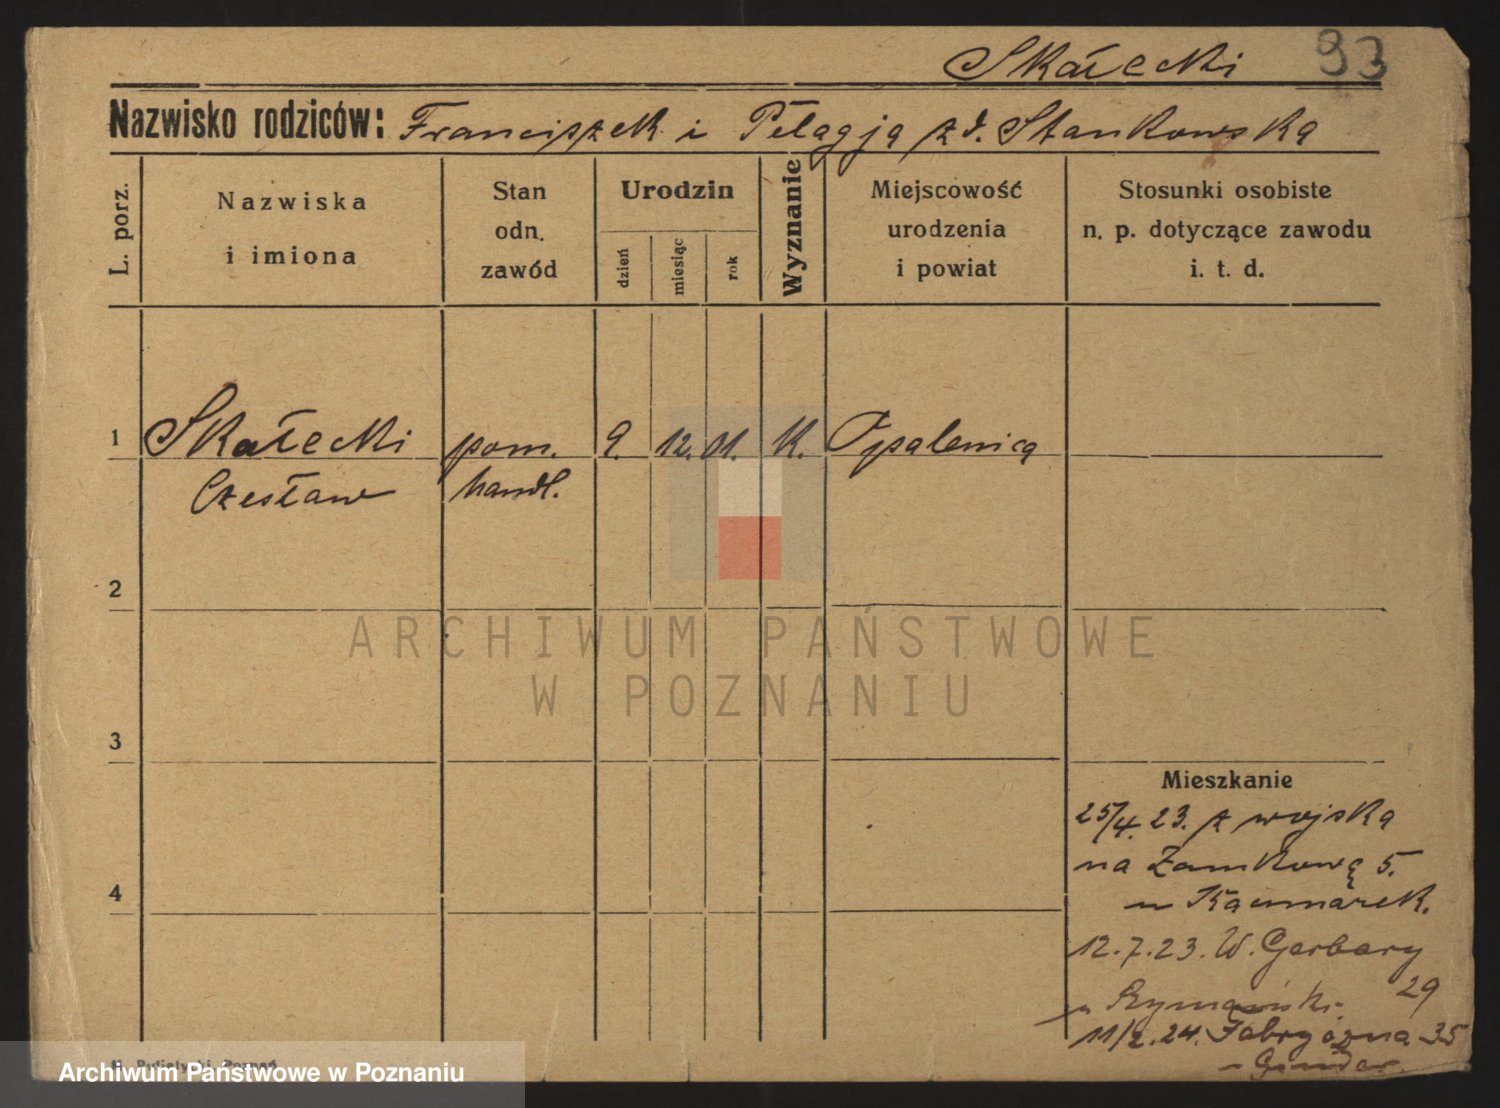 Skałecki 93
Nazwisko rodziców: Franciszek i Pelagja z d. Stankowska
L. porz.
Nazwiska
i imiona
Stan
odn.
zawód
Urodzin
dzień
miesiąc
rok
Wyznanie
Miejscowość
urodzenia
i powiat
Stosunki osobiste
n. p. dotyczące zawodu
i. t. d.
1 Skałecki pom. 9. 12. 01. K. Opalenica
Czesław handl.
2
3
4
ARCHIWUM PAŃSTWOWE
W POZNANIU
Mieszkanie
25/4. 23. z wojska
na Zamkową 5.
u Kaczmarek.
12.7.23. W. Garbary
29
u Szymański
11/2.24. Fabryczna 35
Poznań
Archiwum Państwowe w Poznaniu